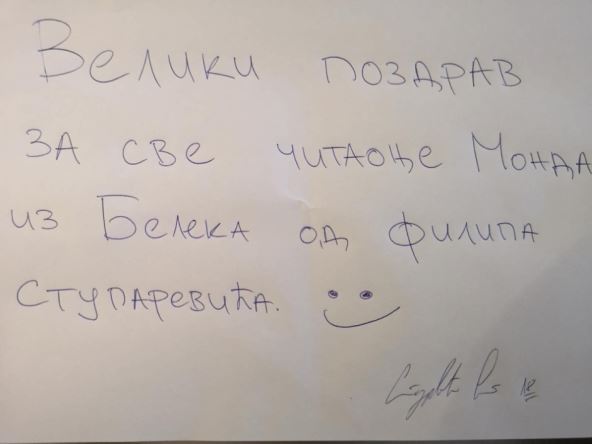 Велики поздрав
за све читаоце Монда
из Белека од Филипа
Ступаревића.
18